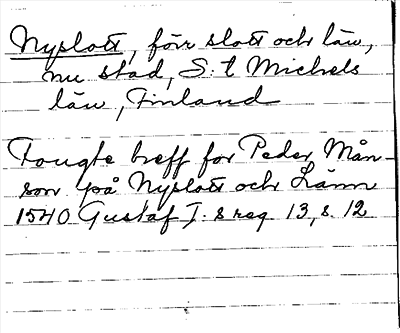 Nyslott, förr slott och län,
nu stad, S:t Michels
län, Finland
Fougte breff for Peder Mån-
son på Nyslott och Länn
1540 Gustaf I:s reg 13, s. 12